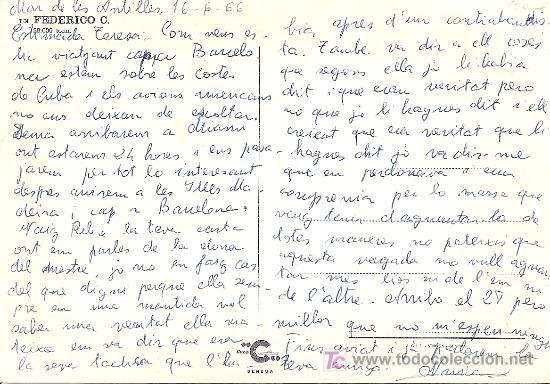 Mar de les Antilles, 16-6-66
T/N FEDERICO C.
20.000 tonn.
Estimada Teresa: Com veus es-
tic viatjant cap a Barcelo
na estem sobre les costes
de Cuba i els avions americans
no ens deixan de escoltar.
Dema arribarem a Miami
ont estarem 24 hores, i ens pasa-
jarem per tot lo interesant
despres anirem a les Illes Ma
deira i cap a Barcelona.
Vaig Rebre la teva carta
ont em parles de la
del mestre, jo no en faig cas
del que digui perque ella sem
pre en una mentida vol
saber una veritat ella ma
teixa em va dir que era
la seva que l'ha
bia apres d'un contrabandis
ta. Tambe va dir a ell coses
que segons ella jo li habia
dit i que eran veritat pero
no que jo li hagues dit i ell
creient que era veritat que li
hagues dit jo va dir-me
que em perdonava i em
comprenia per lo massa que
vaig tenir d'aguantar la de
totes maneres no pateixis que
aquesta vegada no vull aguan
tar mes lios ni de l'em ni
de l'altre. Arribo el 28 pero
millor que no m'esperi ningu
Fins aviat i
teva amiga.
Costa
GENOVA
todocoleccion
www.todocoleccion.net